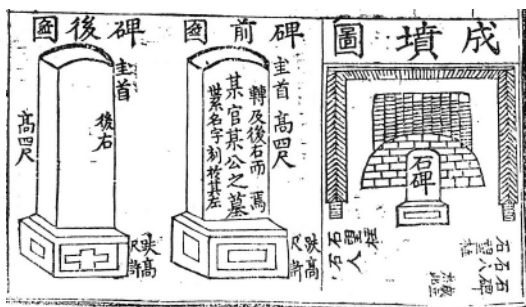 成墳圖
石碑
石望柱
石人
碑前圖
圭首
高四尺
轉及後右而 焉
某官某公之墓
世系名字刻於其左
趺高
尺許
碑後圖
圭首
後右
高四尺
趺高
尺許